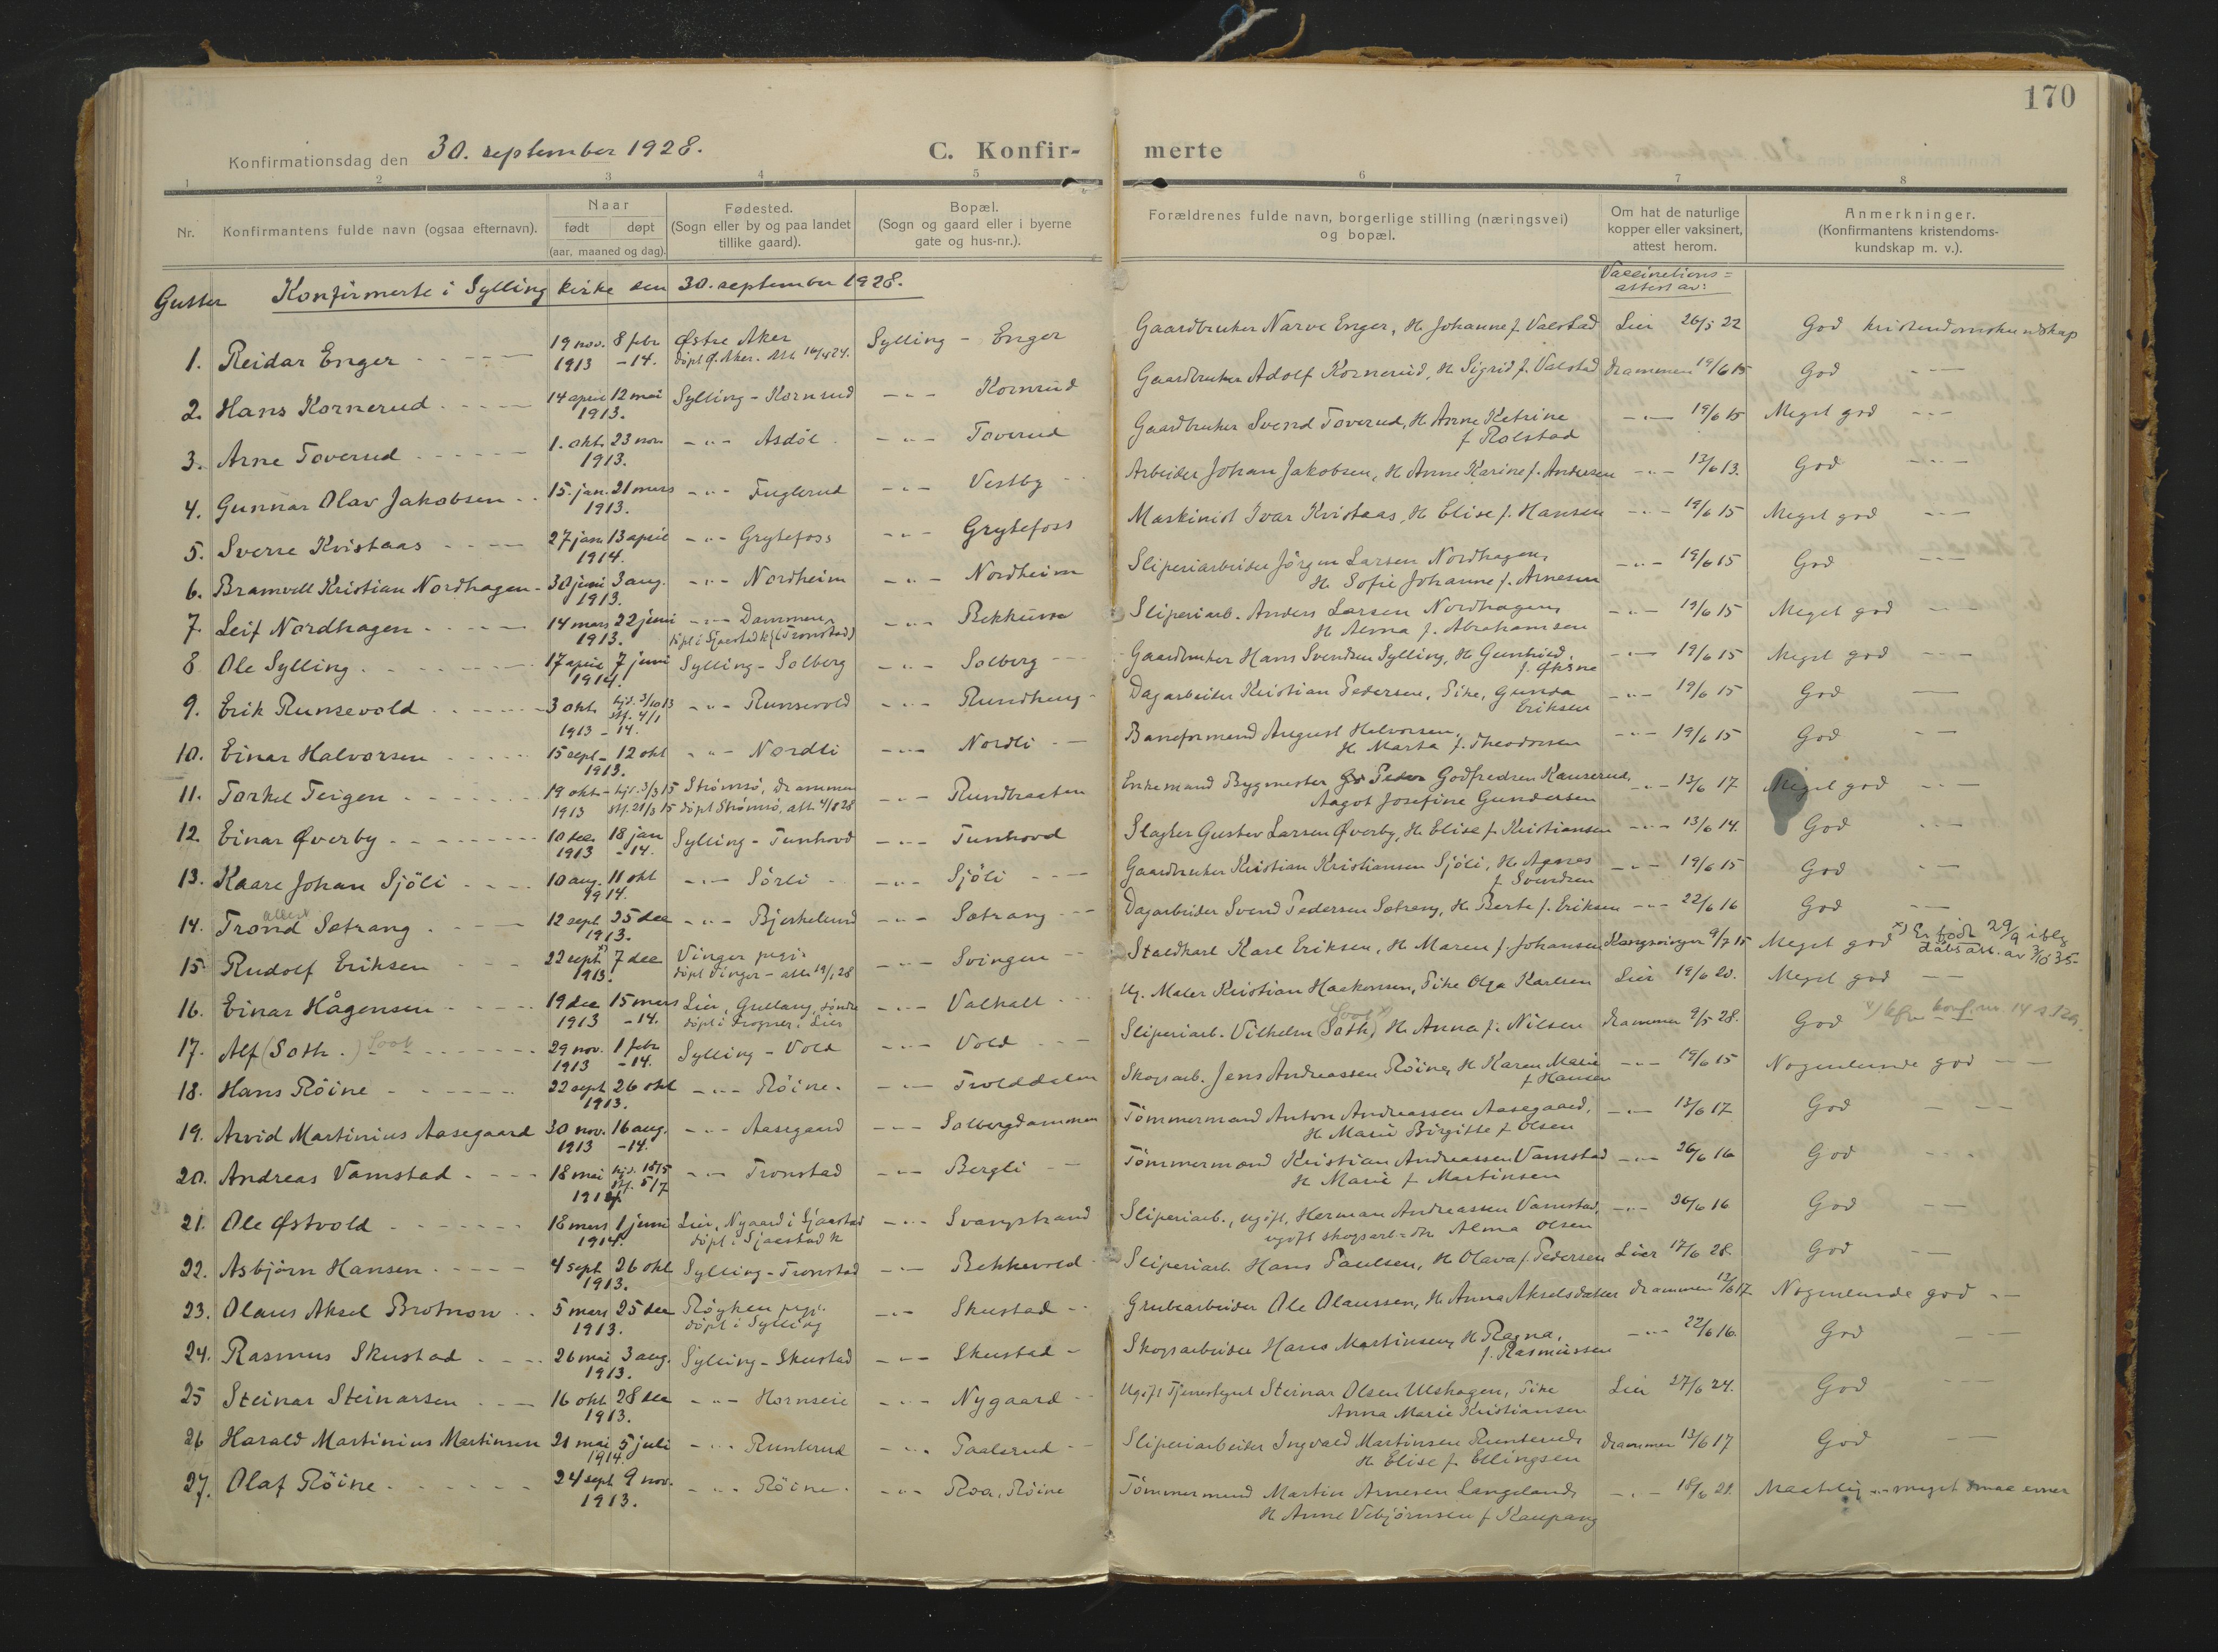 170
Konfirmationsdag den 30. september 1928. C. Konfir- merte
1 2 3 4 5 6 7 8
Nr. Konfirmantens fulde navn (ogsaa efternavn). Naar født døpt (aar, maaned og dag). Fødested. (Sogn eller by og paa landet tillike gaard). Bopæl. (Sogn og gaard eller i byerne gate og hus-nr.). Forældrenes fulde navn, borgerlige stilling (næringsvei) og bopæl. Om hat de naturlige kopper eller vaksinert, attest herom. Anmerkninger. (Konfirmantens kristendoms- kundskap m. v.).
Gutter Konfirmerte i Sylling kirke den 30. september 1928. Vaccinations= attest av:
1. Reidar Enger 19 nov. 8 febr Østre Aker Sylling - Enger Gaardbruker Narve Enger, H. Johanne f. Valstad Lier 26/5 22 God kristendomskundskap
1913 -14. døpt Ø. Aker. Att. 16/4 24.
2. Hans Kornerud 14 april 12 mai Sylling - Kornrud -"- Kornrud Gaardbruker Adolf Kornerud, H. Sigrid f. Valstad Drammen 19/6 15 God
1913.
3. Arne Toverud 1. okt. 23 nov. -"- Asdøl -"- Toverud Gaardbruker Svend Toverud, H. Anne Katrine -"- 19/6 15 Meget god
1913. f. Rolstad
4. Gunnar Olav Jakobsen 15. jan. 21 mars -"- Fuglerud -"- Vestby Arbeider Johan Jakobsen, H. Anne Karine f. Andersen -"- 13/6 13. God
1913.
5. Sverre Kvistaas 27 jan. 13 april -"- Grytefoss -"- Grytefoss Maskinist Ivar Kvistaas, H. Elise f. Hansen -"- 19/6 15 Meget god
1914.
6. Bramvell Kristian Nordhagen 30 juni 3 aug. -"- Nordheim -"- Nordheim Sliperiarbeider Jørgen Larsen Nordhagen, -"- 19/6 15 God
1913. H. Sofie Johanne f. Arnesen
7. Leif Nordhagen 14 mars 22 juni -"- Dammen -"- Bekkum Sliperiarb. Anders Larsen Nordhagen, -"- 19/6 15 Meget god
1913. døpt i Sjaastad k. (Tronstad) H. Alma f. Abrahamsen
8. Ole Sylling 17 april 7 juni Sylling - Solberg -"- Solberg Gaardbruker Hans Svendsen Sylling, H. Gunhild -"- 19/6 15 Meget god
1914. f. Øksne
9. Erik Runsevold 3 okt. hjd. 3/10 13 -"- Runsevold -"- Rundhaug Dagarbeider Kristian Pedersen, Pike, Gunda -"- 19/6 15 God
1913 stf. 4/1 -14. Eriksen
10. Einar Halvorsen 15 sept. 12 okt -"- Nordli -"- Nordli Baneformand August Halvorsen, -"- 19/6 15 God
1913. H. Marta f. Theodorsen
11. Torkel Teigen 19 okt. hjd. 3/3 15 Strømsø, Drammen -"- Rundbraaten Enkemand Bygmester Peder Godfredsen Kanserud, -"- 13/6 17 Meget god
1913 stf. 21/3 15 døpt Strømsø, att. 4/8 28 Aagot Josefine Gundersen
12. Einar Øverby 10 dec. 18 jan Sylling - Tunhovd -"- Tunhovd Slagter Gustav Larsen Øverby, H. Elise f. Kristiansen -"- 13/6 14. God
1913 -14.
13. Kaare Johan Sjöli 10 aug. 11 okt -"- Sørli -"- Sjöli Gaardbruker Kristian Kristiansen Sjöli, H. Agnes -"- 19/6 15 God
1914. f. Svendsen
14. Trond Sætrang 12 sept 25 dec -"- Bjerkelund -"- Sætrang Dagarbeider Svend Pedersen Sætrang, H. Berte f. Eriksen -"- 22/6 16 God
1913.
15 Rudolf Eriksen 22 sept x) 7 dec Vinger prgj. -"- Svingen Staldkarl Karl Eriksen, H. Maren f. Johansen Kongsvinger 9/7 15 Meget god x) Er født 29/9 iflg dåbsatt. av 3/10 35.
1913. døpt Vinger - att. 19/1 28
16. Einar Hågensen 19 dec 15 mars Lier, Gullaug, søndre -"- Valhall Ug. Maler Kristian Haakonsen, Pike Olga Karlsen Lier 19/6 20. Meget god
1913 -14. døpt i Frogner, Lier
17. Alf (Soth.) Soot 29 nov. 1 febr Sylling - Vold -"- Vold Sliperiarb. Vilhelm (Soth) Soot x) H. Anna f. Nilsen Drammen 9/5 28. God
1913 -14.
18. Hans Röine 22 sept 26 okt -"- Röine -"- Trolddalen Skogsarb. Jens Andreassen Röine, H. Karen Marie -"- 19/6 15 Nogenlunde god
1913. f. Hansen
19. Arvid Martinius Aasegaard 30 nov. 16 aug. -"- Aasegaard -"- Solbergdammen Tömmermand Anton Andreassen Aasegaard, -"- 13/6 17 God
1913 -14. H. Marie Birgitte f. Olsen
20. Andreas Vamstad 18 mai hjd. 18/5 -"- Tronstad -"- Bergli Tömmermand Kristian Andreassen Vamstad -"- 26/6 16 God
1914 stf. 5/7 H. Marie f. Martinsen
21. Ole Østvold 18 mars 1 juni Lier, Nygaard i Sjaastad -"- Svangstrand Sliperiarb., ugift, Herman Andreassen Vamstad, -"- 26/6 16 God
1914. døpt i Sjaastad k ugift skogsarb. dtr. Alma Olsen
22. Asbjørn Hansen 4 sept 26 okt Sylling - Tronstad -"- Bekkevold Sliperiarb. Hans Paulsen, H. Olava f. Pedersen Lier 17/6 28. God
1913.
23. Olaus Aksel Brotnow 5 mars 25 dec Røyken prgj. -"- Skustad Grubearbeider Ole Olaussen, H. Anna Akselsdatter Drammen 13/6 17 Nogenlunde god
1913. døpt i Sylling
24. Rasmus Skustad 26 mai 3 aug. Sylling - Skustad -"- Skustad Skogsarbeider Hans Martinsen, H. Ragna, -"- 22/6 16. God
1913. f. Rasmussen
25 Steinar Steinarsen 16 okt 28 dec -"- Hornseie -"- Nygaard Ugift Tjenestegut Steinar Olsen Ulshagen, Pike Lier 27/6 24. God
1913. Anna Marie Kristiansen
26 Harald Martinius Martinsen 21 mai 5 juli -"- Runterud -"- Paalerud Sliperiarbeider Ingvald Martinsen Runterud, Drammen 13/6 17 God
1914. H. Elise f. Ellingsen
27. Olaf Röine 24 sept 9 nov. -"- Röine -"- Roa, Röine Tömmermand Martin Arnesen Langeland, -"- 18/6 21. Maatelig - meget smaa evner
1913. H. Anne Vebjørnsen f. Kaupang